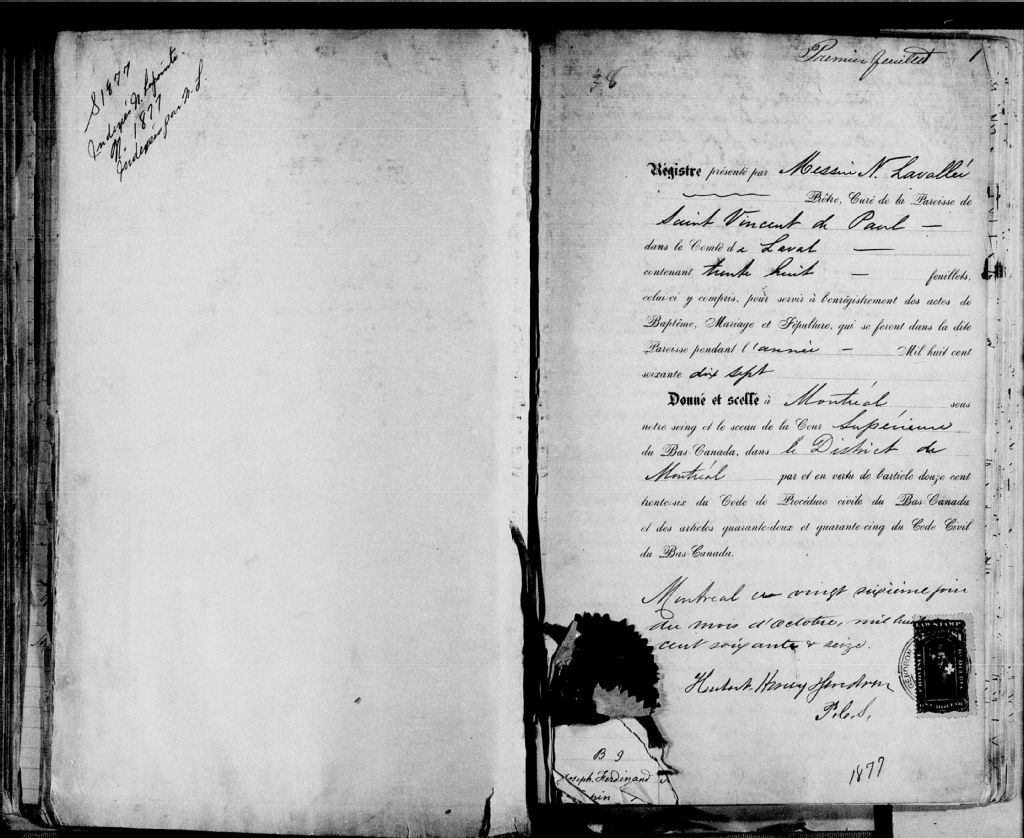 S 1877
Indexée N. Lapointe
N. 1877
Indexée par N. L
Premier feuillet 1
38
Régistre présenté par Messire N. Lavallée
Prêtre, Curé de la Paroisse de
Saint Vincent de Paul —
dans le Comté de Laval —
contenant trente huit — feuillets,
celui-ci y compris, pour servir à l'enrégistrement des actes de
Baptême, Mariage et Sépulture, qui se feront dans la dite
Paroisse pendant l'année — Mil huit cent
soixante dix sept
Donné et scellé à Montréal sous
notre seing et le sceau de la Cour Supérieure
du Bas-Canada, dans le District de
Montréal par et en vertu de l'article douze cent
trente-six du Code de Procédure civile du Bas-Canada
et des articles quarante-deux et quarante-cinq du Code Civil
du Bas-Canada.
Montreal ce vingt sixième jour
du mois d'Octobre, mil huit
cent soixante & seize.
Hubert
P.C.S.
B 9
Joseph Ferdinand
1877